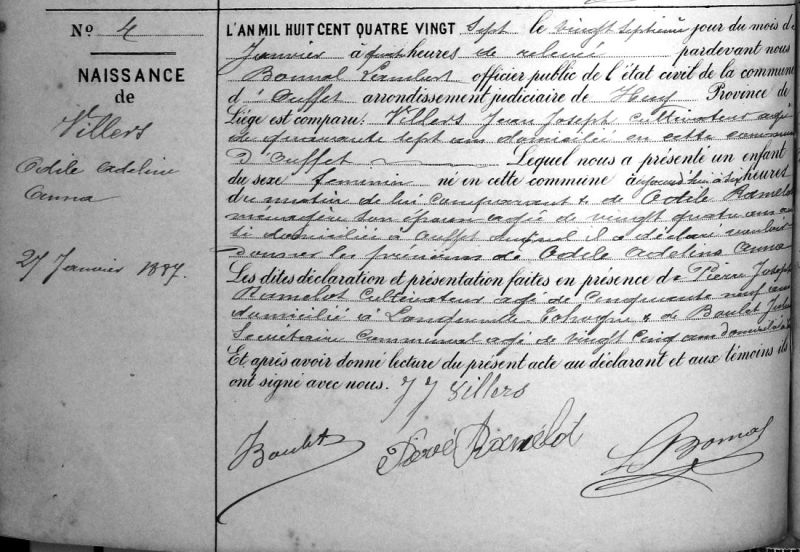 Nº 4
NAISSANCE
de
Villers
Odile Adeline
Anna
27 Janvier 1887.
L'AN MIL HUIT CENT QUATRE VINGT sept le vingt septième jour du mois de
Janvier à quatre heures de relevée pardevant nous
Bonmal Lambert officier public de l'état civil de la commune
d'Ouffet arrondissement judiciaire de Huy Province de
Liège est comparu: Villers Jean Joseph cultivateur agé
de quarante sept ans domicilié en cette commune
D'Ouffet Lequel nous a présenté un enfant
du sexe féminin né en cette commune aujourd'hui à six heures
du matin de lui comparant & de Odile Ramelot
ménagère son épouse agée de vingt quatre ans
si domiciliée à Ouffet auquel il a déclaré vouloir
donner les prénoms de Odile Adeline Anna
Les dites déclaration et présentation faites en présence de Pierre Joseph
Ramelot Cultivateur agé de Cinquante neuf ans
domicilié à & de Boulet
Secrétaire Communal agé de vingt cinq ans
Et après avoir donné lecture du présent acte au déclarant et aux témoins ils
ont signé avec nous. J J Villers
Boulet Ramelot L Bonmal